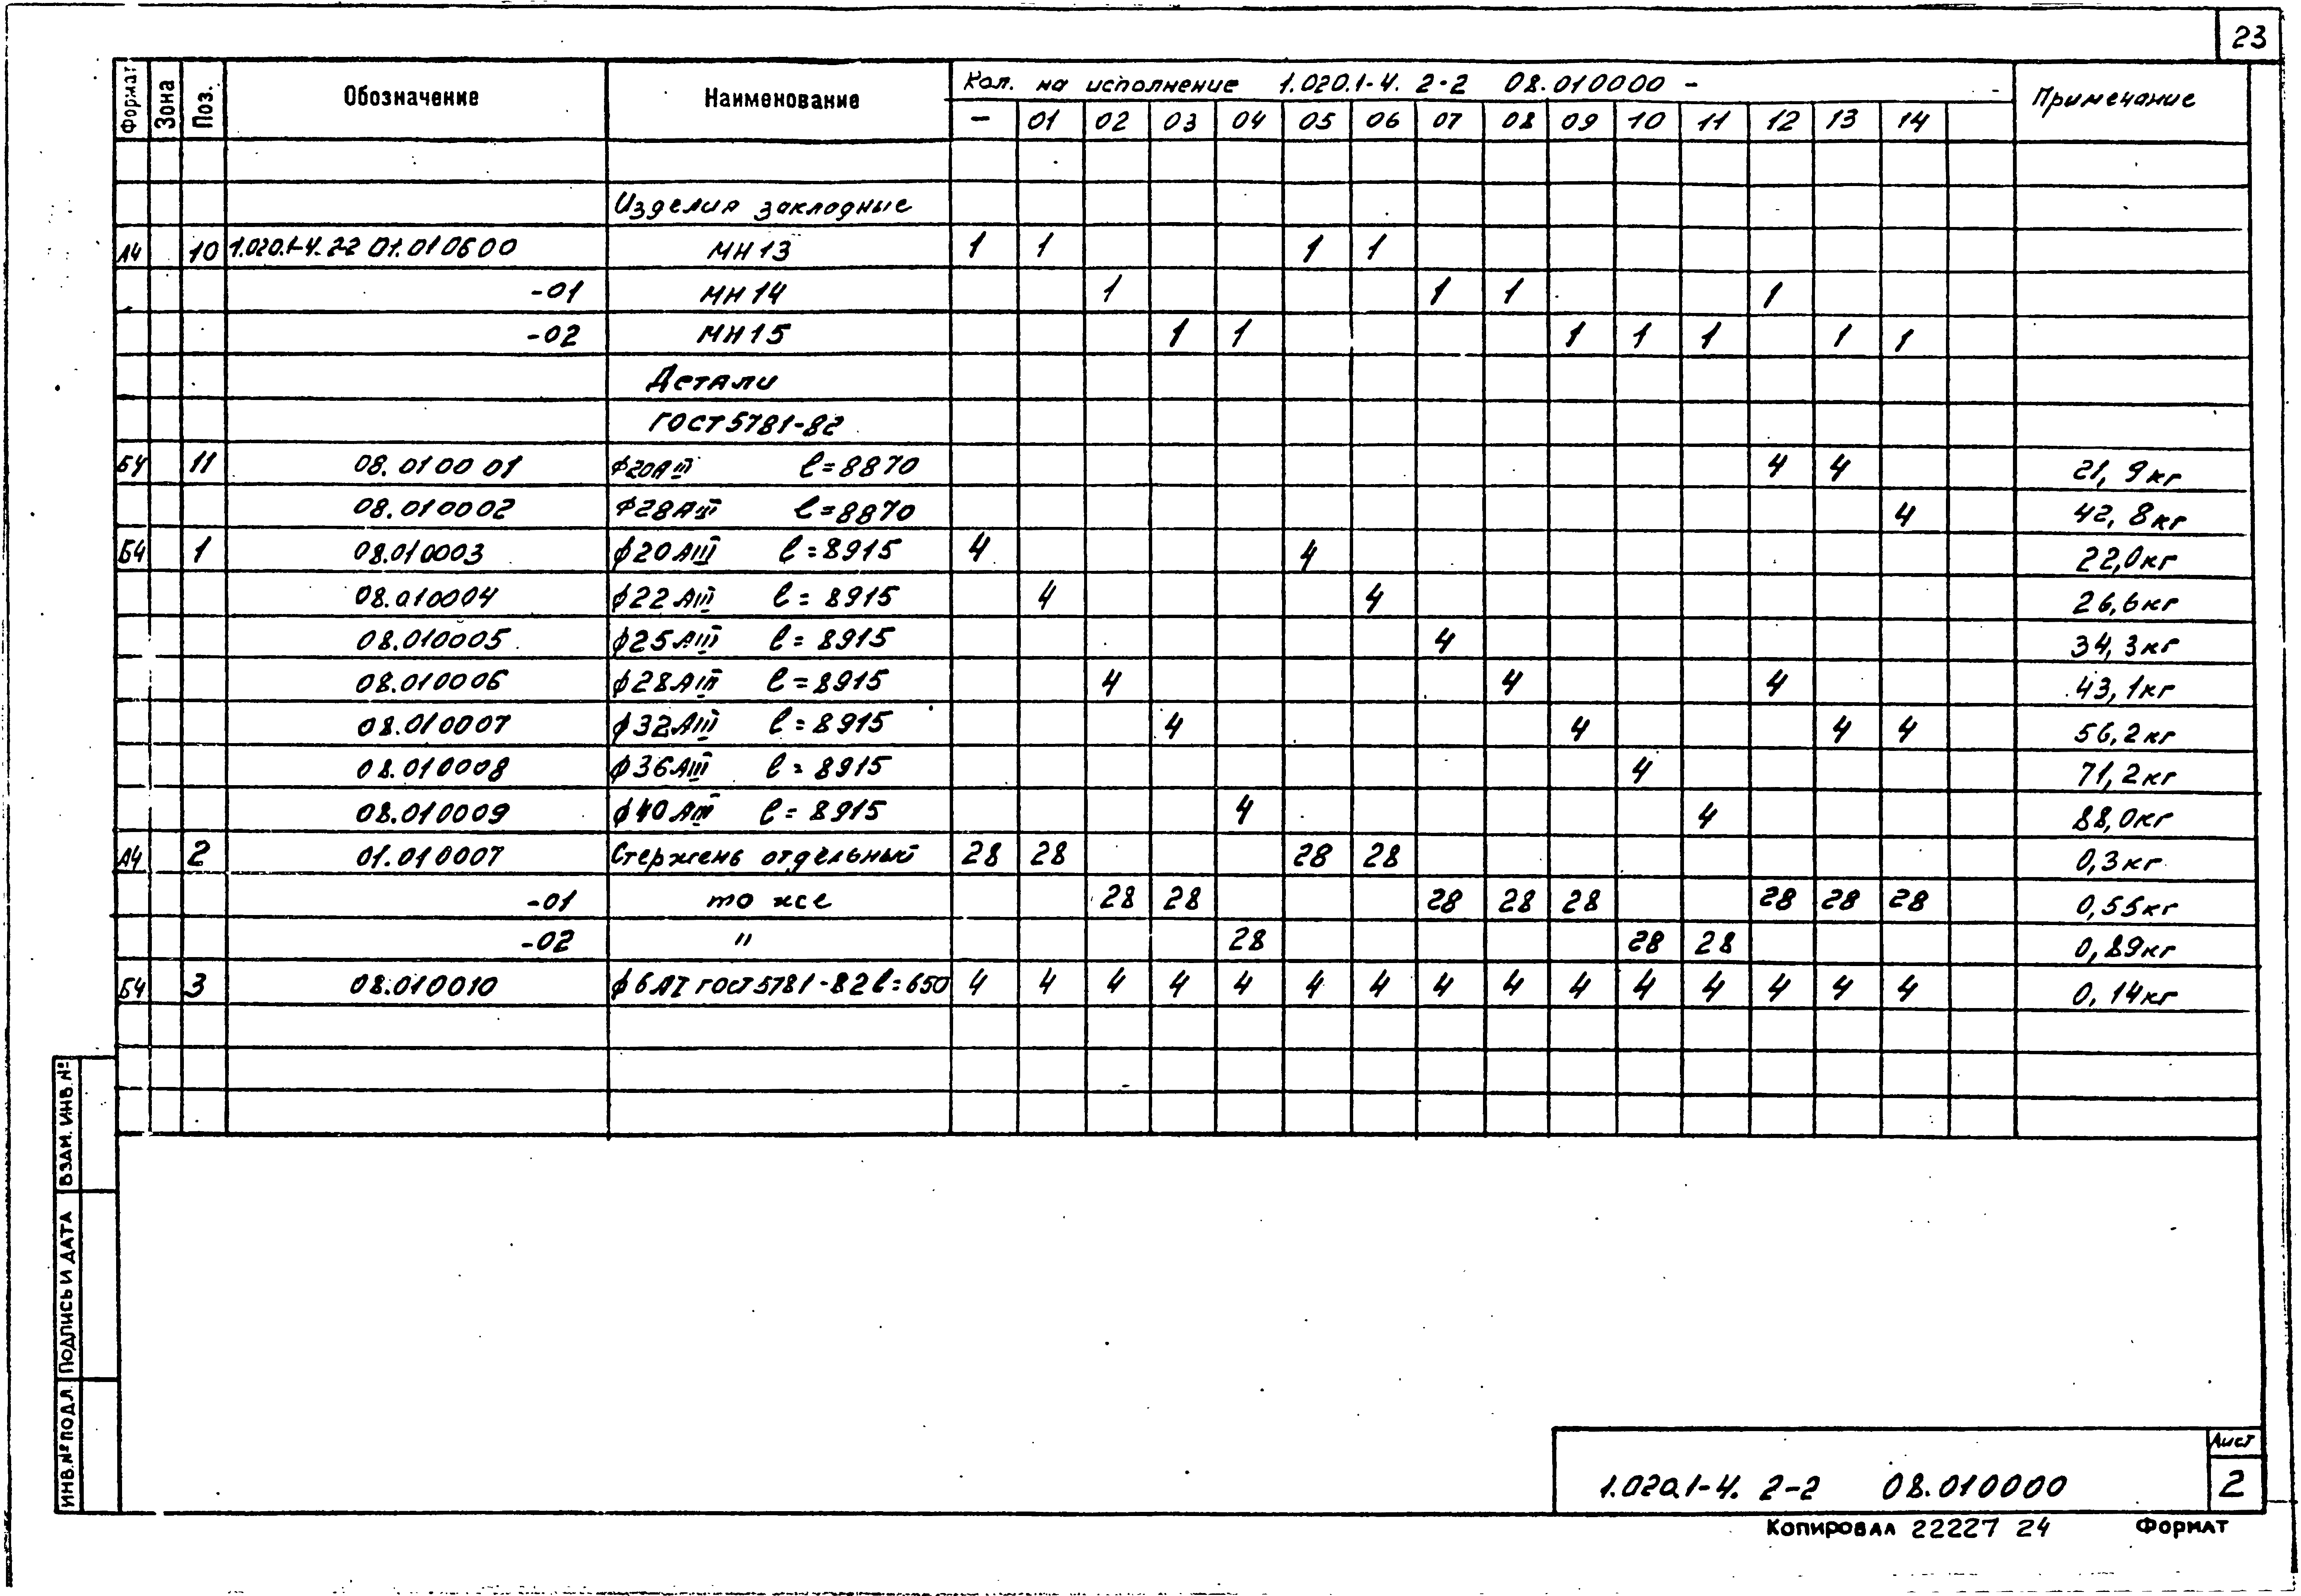 23
Формат Зона Поз. Обозначение Наименование Кол. на исполнение 1.020.1-4. 2-2 08.010000 - Примечание
- 01 02 03 04 05 06 07 08 09 10 11 12 13 14
Изделия закладные
А4 10 1.020.1-4. 2-2 01.010600 МН13 1 1 1 1
-01 МН14 1 1 1 1
-02 МН15 1 1 1 1 1 1 1
Детали
ГОСТ 5781-82
Б4 11 08.010001 ϕ20АIII ℓ=8870 4 4 21,9кг
08.010002 ϕ28АIII ℓ=8870 4 42,8кг
Б4 1 08.010003 ϕ20АIII ℓ=8915 4 4 22,0кг
08.010004 ϕ22АIII ℓ=8915 4 4 26,6кг
08.010005 ϕ25АIII ℓ=8915 4 34,3кг
08.010006 ϕ28АIII ℓ=8915 4 4 4 43,1кг
08.010007 ϕ32АIII ℓ=8915 4 4 4 4 56,2кг
08.010008 ϕ36АIII ℓ=8915 4 71,2кг
08.010009 ϕ40АIII ℓ=8915 4 4 88,0кг
А4 2 01.010007 Стержень отдельный 28 28 28 28 0,3кг
-01 то же 28 28 28 28 28 28 28 28 0,55кг
-02 " 28 28 28 0,89кг
Б4 3 08.010010 ϕ6АI ГОСТ 5781-82 ℓ=650 4 4 4 4 4 4 4 4 4 4 4 4 4 4 4 0,14кг
ИНВ.№ ПОДЛ. ПОДПИСЬ И ДАТА ВЗАМ. ИНВ. №
1.020.1-4. 2-2 08.010000
Лист
2
Копировал 22227 24 Формат